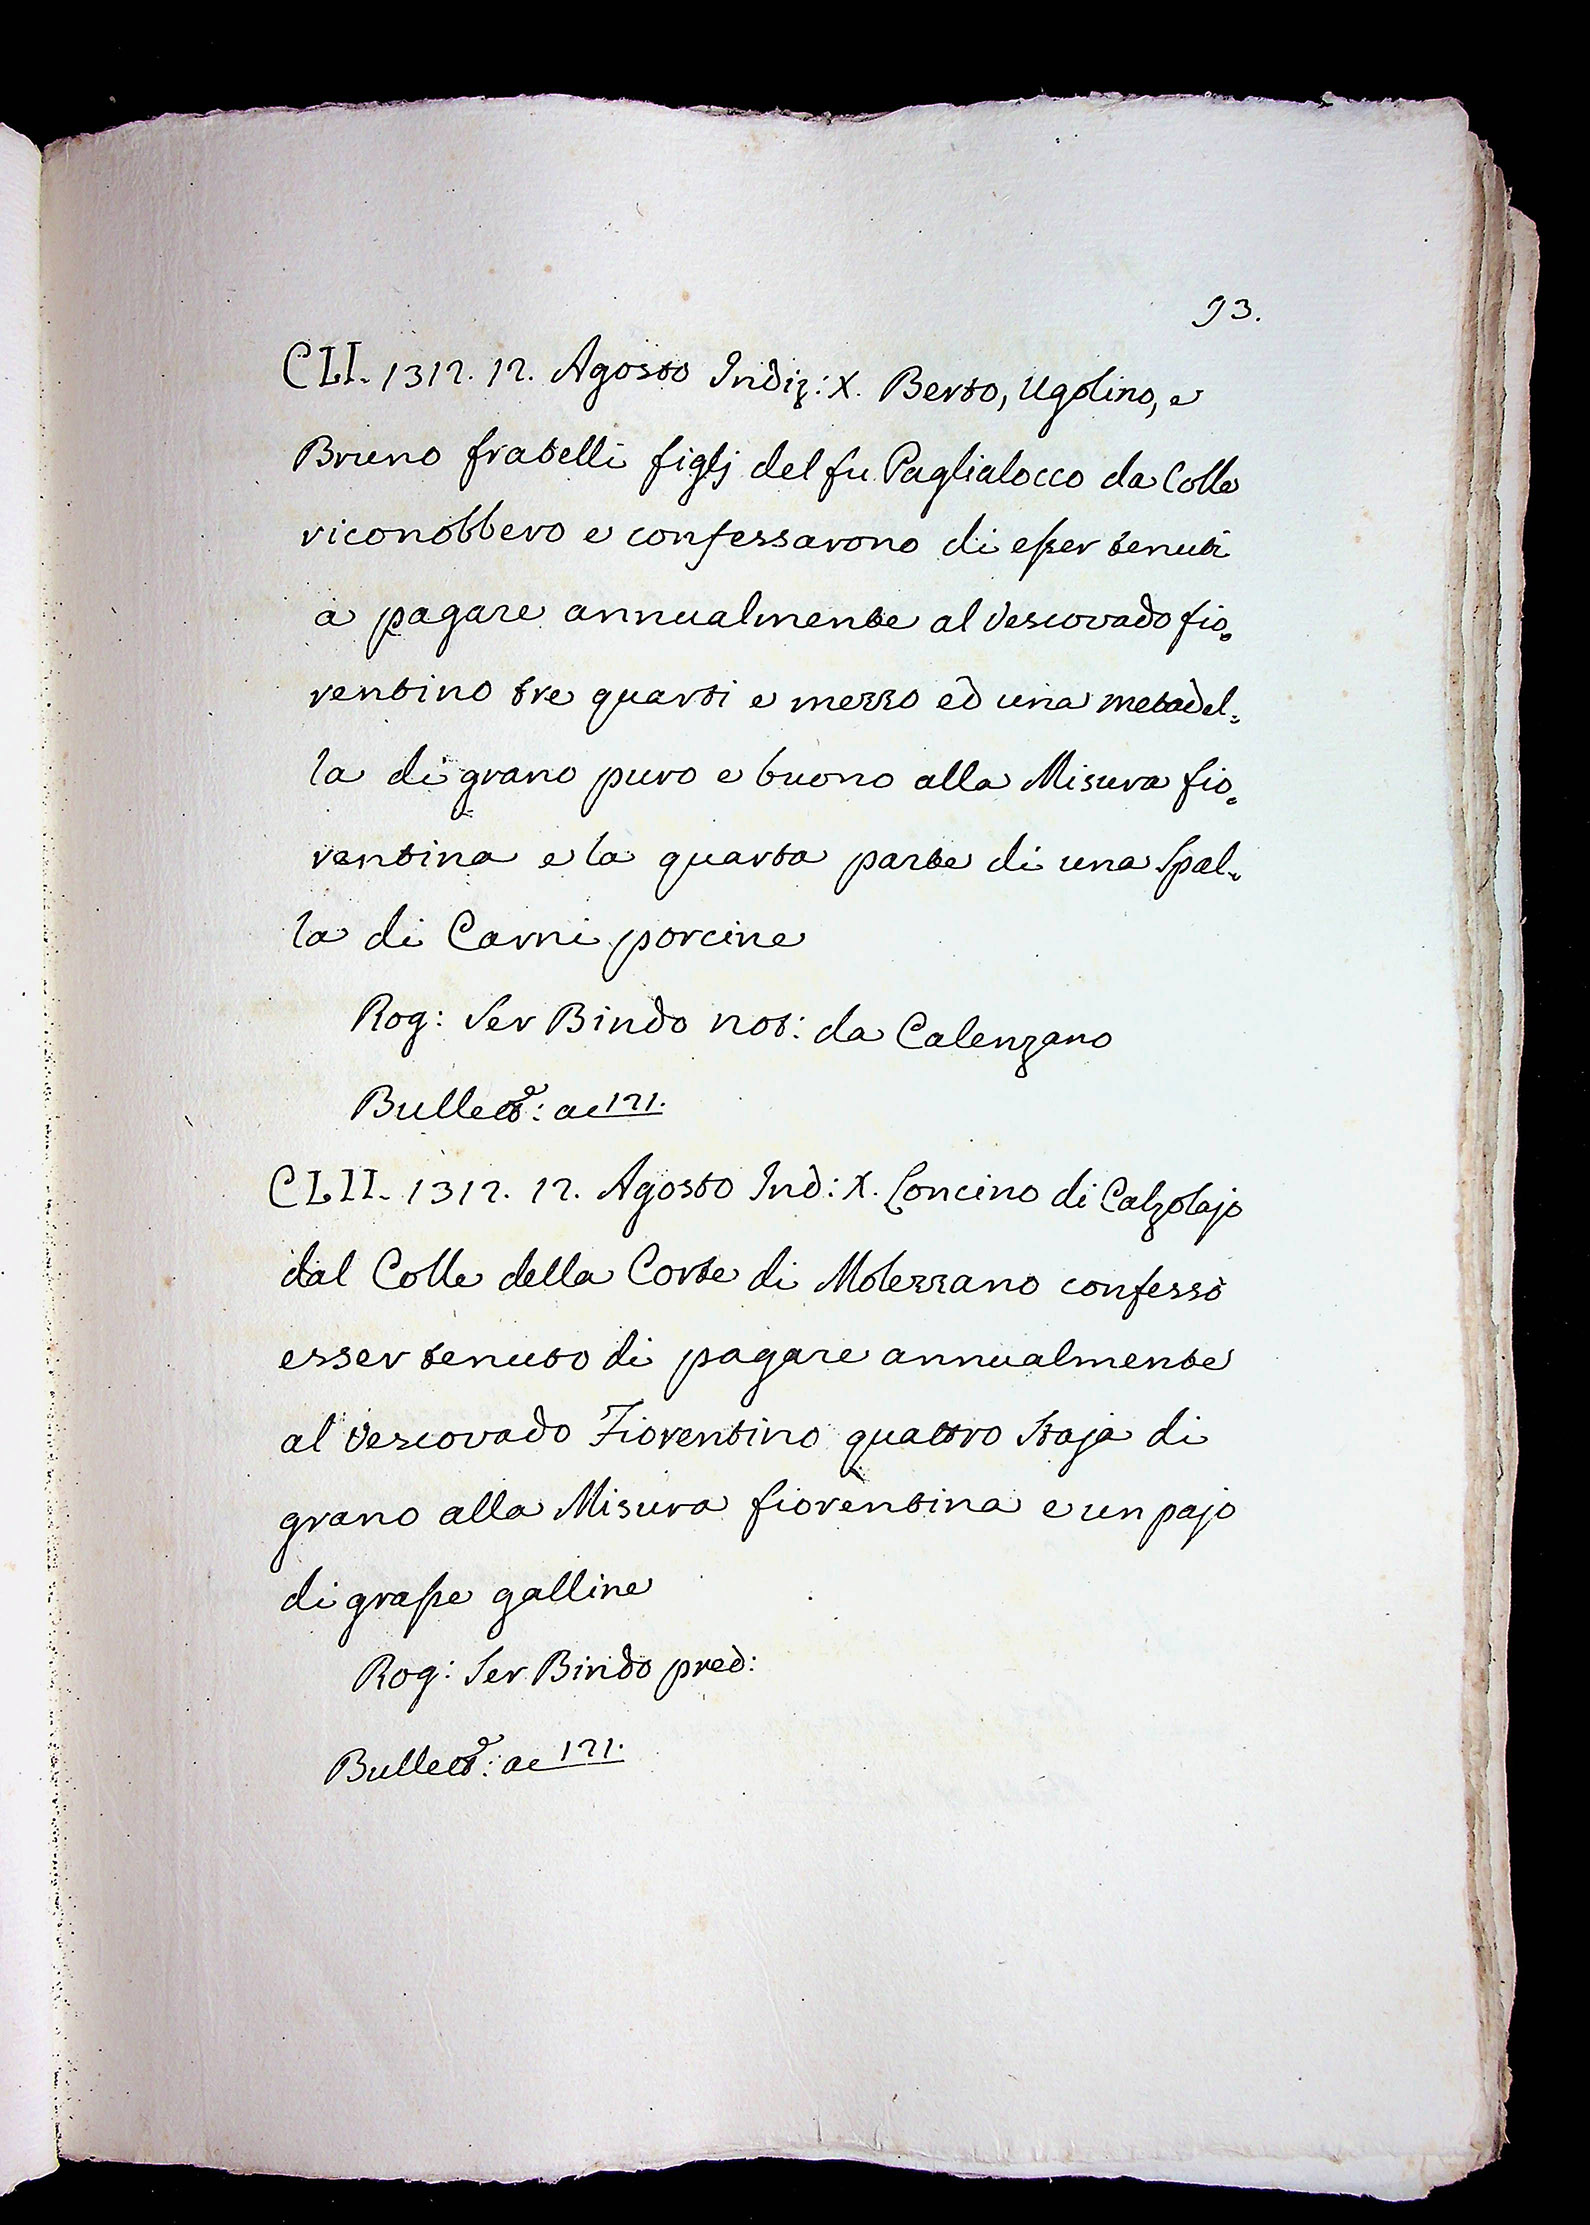 93.
CLI. 1312. 12. Agosto Indiz: X. Berto, Ugolino, e
Bruno fratelli figlj del fu Paglialocco da Colle
riconobbero e confessarono di esser tenuti
a pagare annualmente al Vescovado fio=
rentino tre quarti e mezzo ed una metadel=
la di grano puro e buono alla Misura fio=
rentina e la quarta parte di una Spal=
la di Carni porcine
Rog: Ser Bindo not: da Calenzano
Bullett.e: ac 121.
CLII. 1312. 12. Agosto Ind: X. Concino di Calzolajo
dal Colle della Corte di Molezzano confessò
esser tenuto di pagare annualmente
al Vescovado Fiorentino quattro Staja di
grano alla Misura fiorentina e un pajo
di grasse galline
Rog: Ser Bindo pred:
Bullett.e: ac 121.